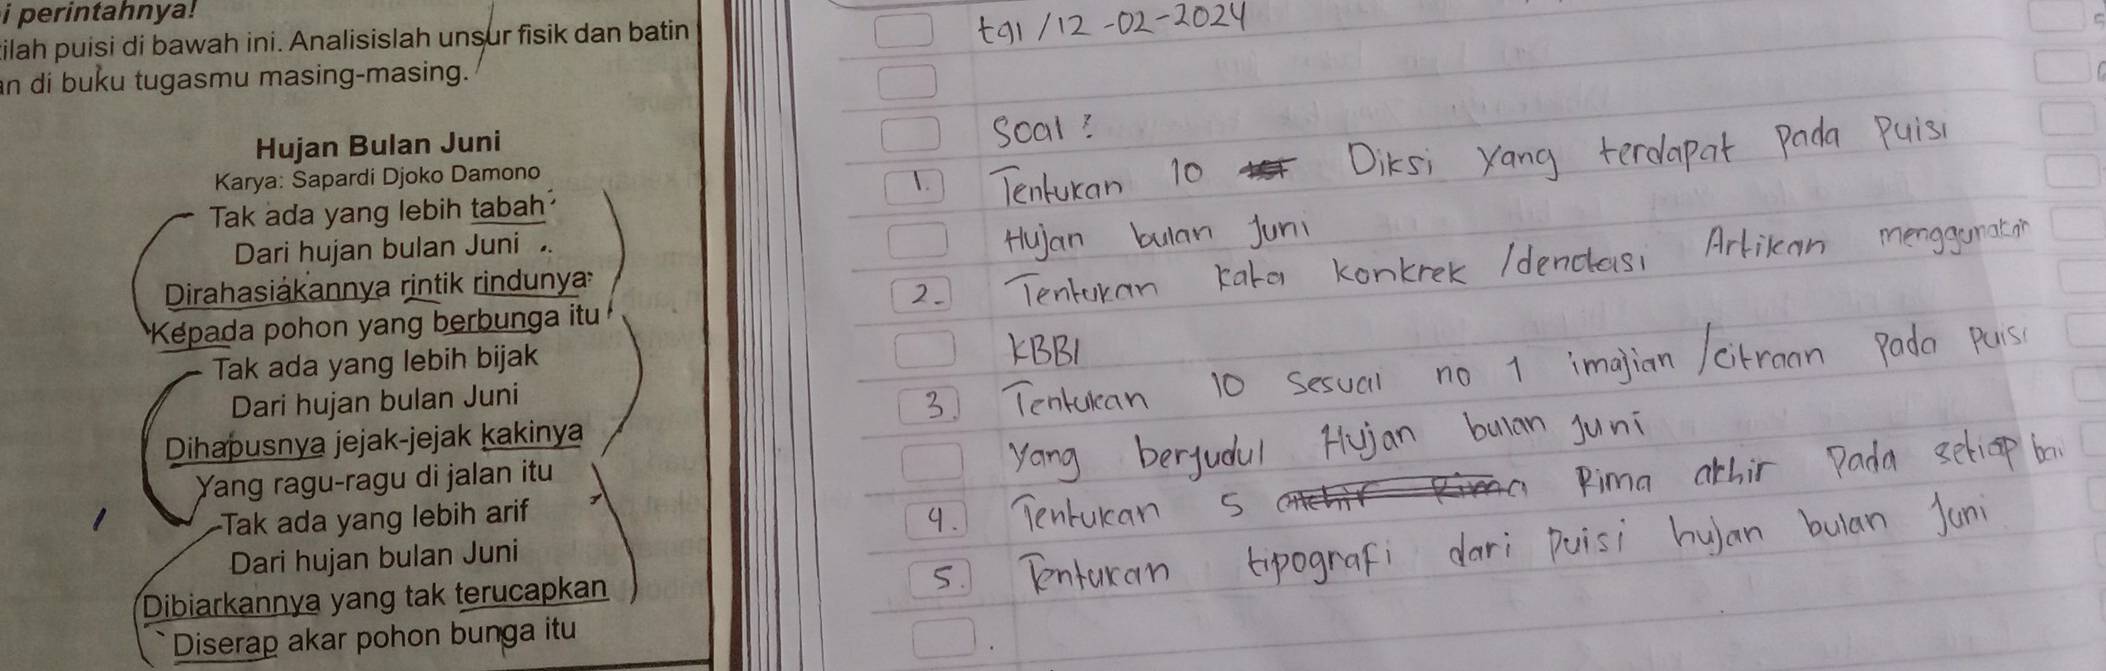 i perintahnya!
ilah puisi di bawah ini. Analisislah unsur fisik dan batin
an di buku tugasmu masing-masing.
Hujan Bulan Juni
Karya: Sapardi Djoko Damono
Tak ada yang lebih tabah
Dari hujan bulan Juni
Dirahasiakannya rintik rindunya
Kepada pohon yang berbunga itu
Tak ada yang lebih bijak
Dari hujan bulan Juni
Dihapusnya jejak-jejak kakinya
Yang ragu-ragu di jalan itu
Tak ada yang lebih arif
Dari hujan bulan Juni
Dibiarkannya yang tak terucapkan
Diserap akar pohon bunga itu
tgl / 12 -02-2024
Soal :
1. Tentukan 10 Diksi yang terdapat pada puisi
Hujan bulan Juni
2. Tentukan kata konkrek /denotasi Artikan menggunakan
KBBI
3. Tentukan 10 sesuai no 1 imajian /citraan pada puisi
yang berjudul Hujan bulan Juni
4. Tentukan 5 Rima akhir pada setiap bai
5. Tentukan tipografi dari puisi hujan bulan Juni